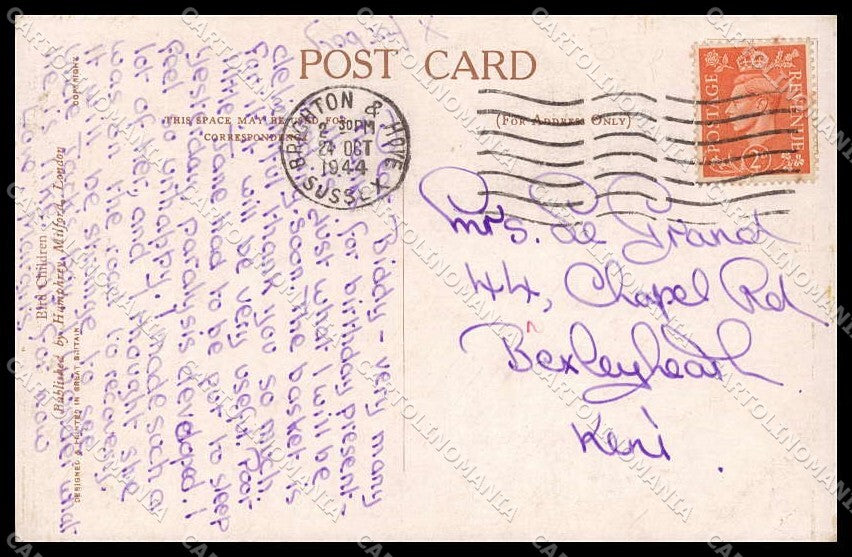 POST CARD
THIS SPACE MAY BE USED FOR
CORRESPONDENCE
(FOR ADDRESS ONLY)
BRIGHTON & HOVE
2 30PM
24 OCT
1944
SUSSEX
POSTAGE REVENUE
2D
Mrs. Le Grand
44, Chapel Rd
Bexleyheath
Kent.
Dear Biddy - very many
for birthday present -
Just what I will be
soon. The basket is
thank you so much
for it. It will be very useful. Poor
Jane had to be put to sleep
yesterday. Paralysis developed. I
feel so unhappy. I made such a
lot of her, and I thought she
was on the road to recovery.
It will be strange to see
and
for now
Love
Bird Children
(Published by Humphrey Milford, London
DESIGNED & PRINTED IN GREAT BRITAIN
COPYRIGHT
CARTOLINOMANIA